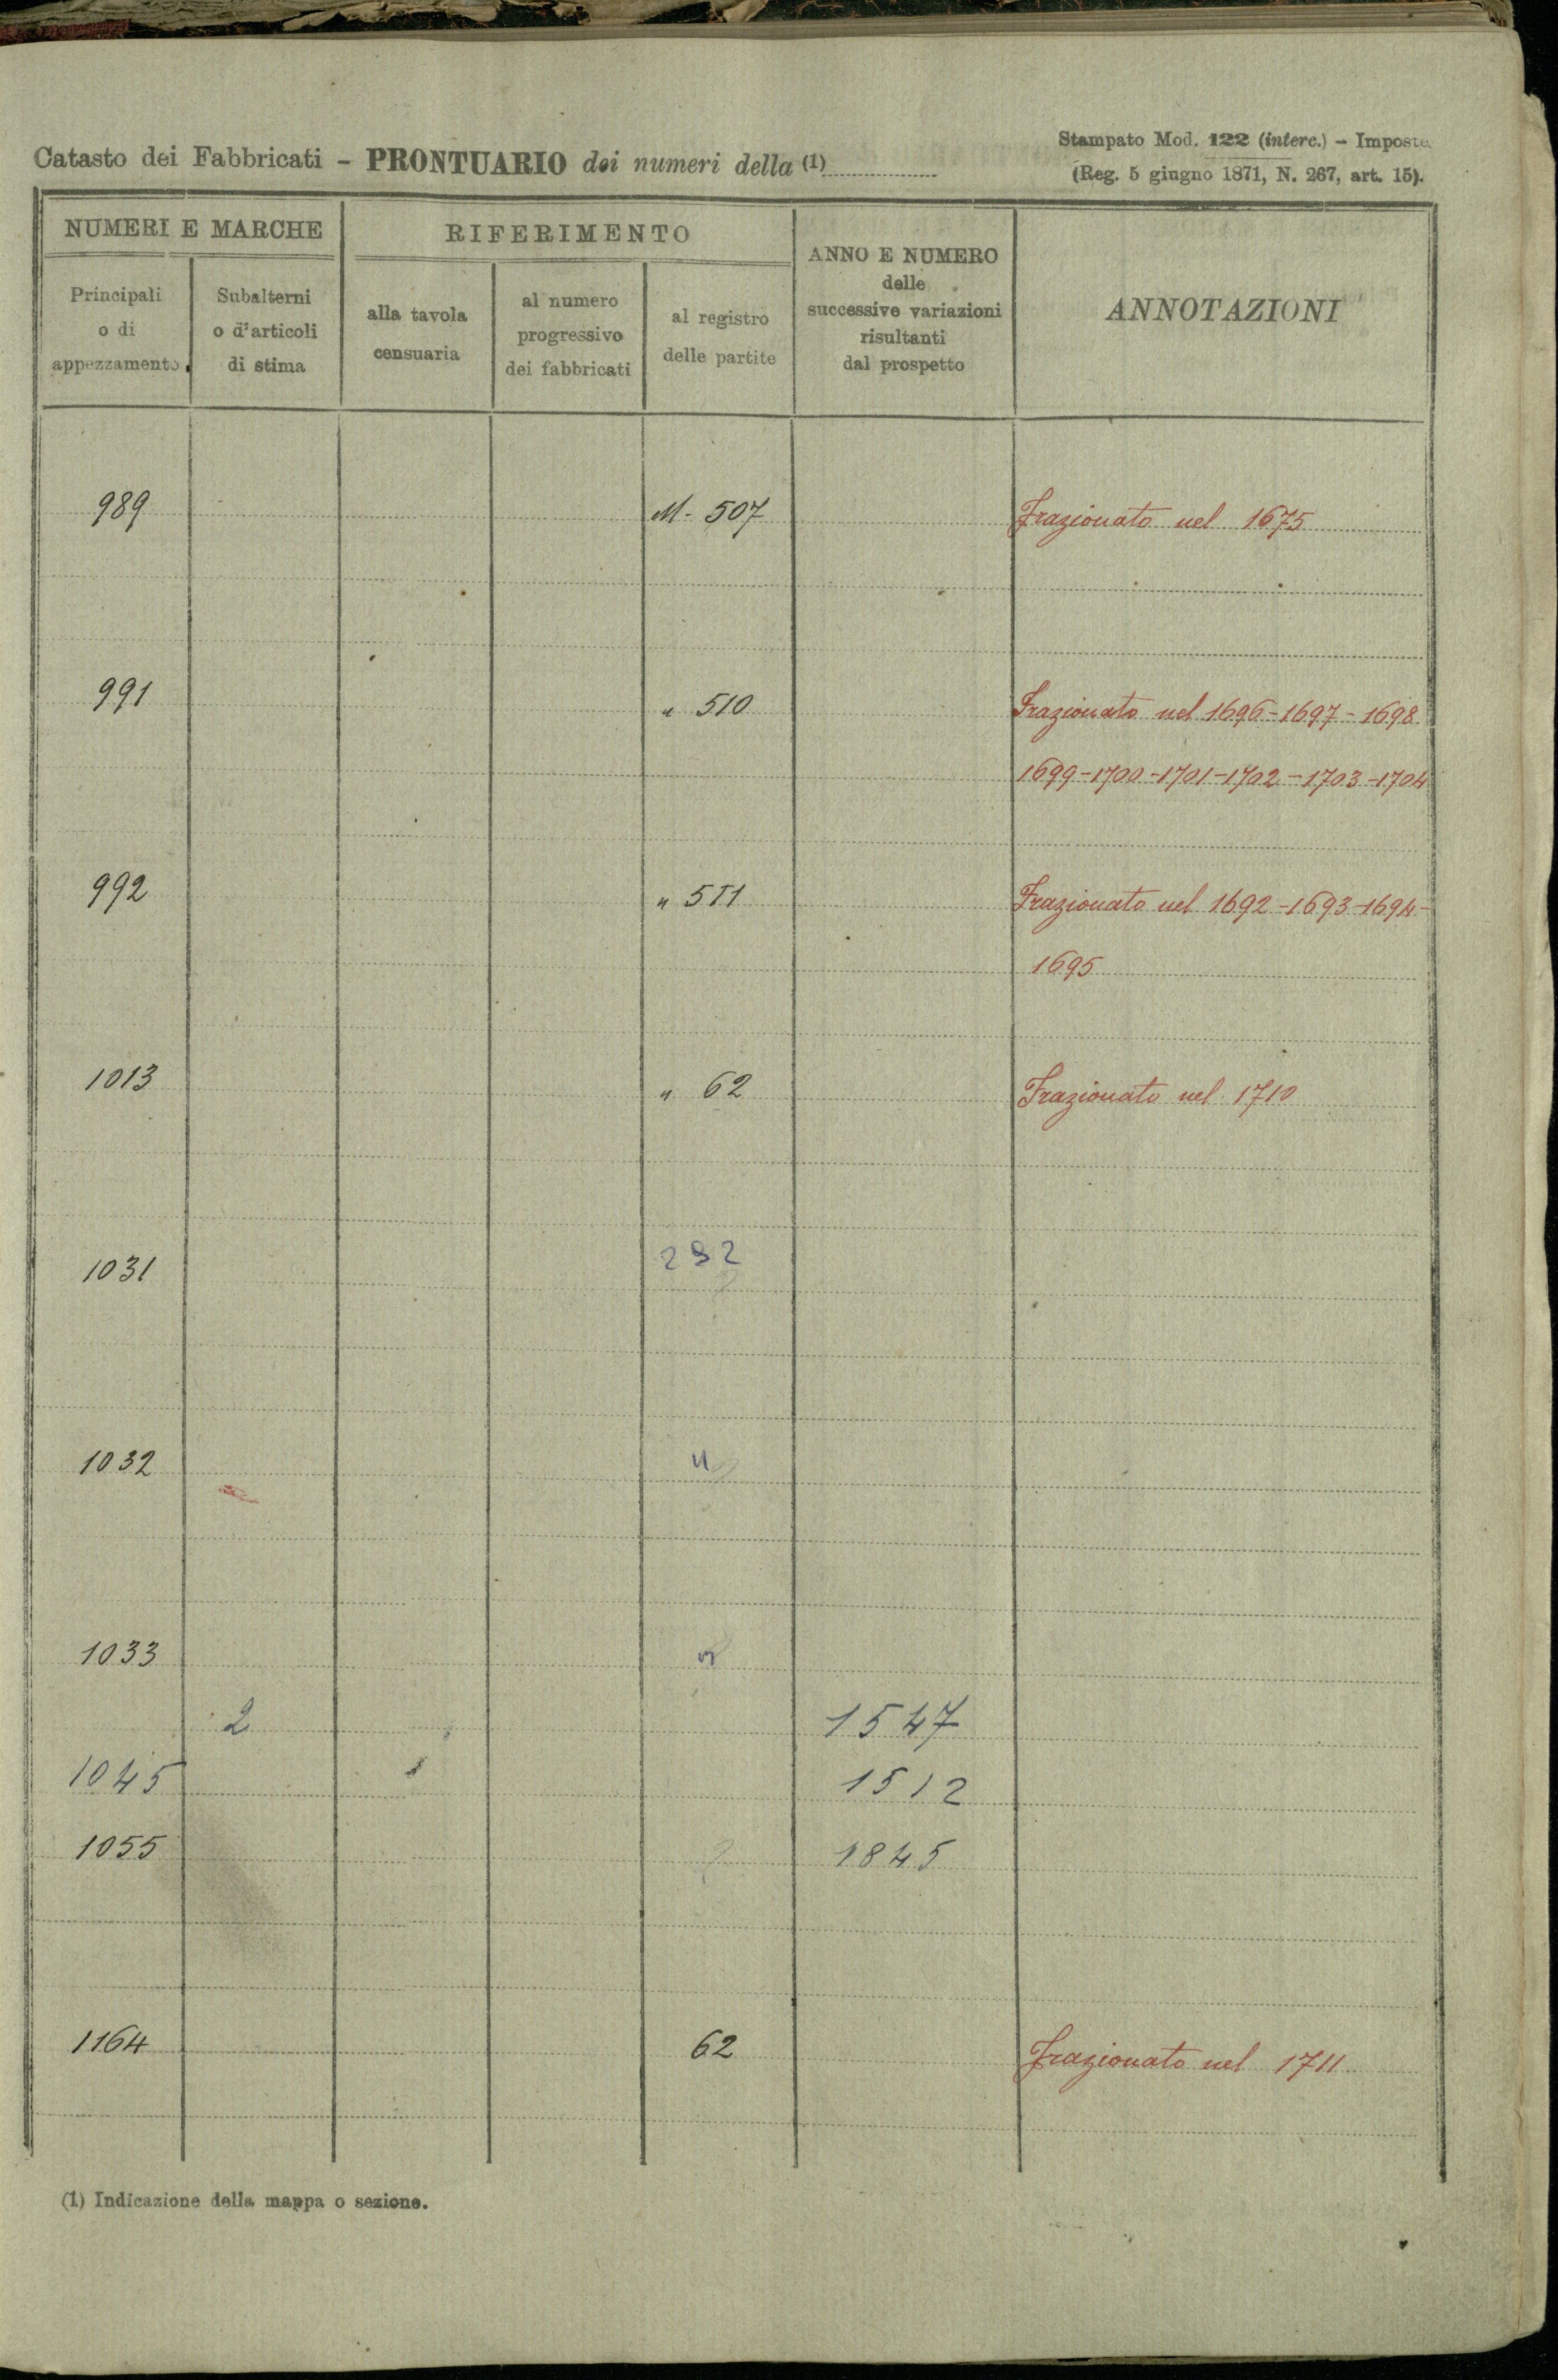 Catasto dei Fabbricati - PRONTUARIO dei numeri della (1)
Stampato Mod. 122 (interc.) - Imposte
(Reg. 5 giugno 1871, N. 267, art. 15).
NUMERI E MARCHE
RIFERIMENTO
ANNO E NUMERO
delle
successive variazioni
risultanti
dal prospetto
ANNOTAZIONI
Principali
o di
appezzamento
Subalterni
o d'articoli
di stima
alla tavola
censuaria
al numero
progressivo
dei fabbricati
al registro
delle partite
989 M- 507 Frazionato nel 1675
991 " 510 Frazionato nel 1696-1697-1698
1699-1700-1701-1702-1703-1704
992 " 511 Frazionato nel 1692-1693-1694-
1695
1013 " 62 Frazionato nel 1710
1031 292
1032 "
1033 "
2 1547
1045 1512
1055 1845
1164 62 Frazionato nel 1711
(1) Indicazione della mappa o sezione.